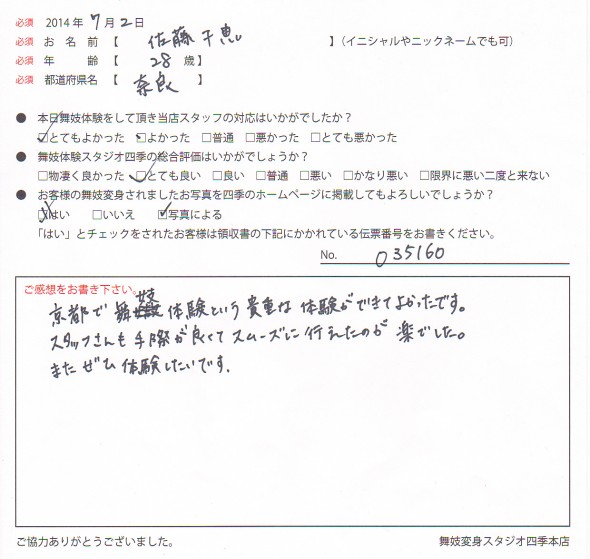 必須 2014年7月2日
必須 お名前【 佐藤千恵 】(イニシャルやニックネームでも可)
必須 年齢【 28歳】
必須 都道府県名【 奈良 】
● 本日舞妓体験をして頂き当店スタッフの対応はいかがでしたか？
□とてもよかった □よかった □普通 □悪かった □とても悪かった
● 舞妓体験スタジオ四季の総合評価はいかがでしょうか？
□物凄く良かった □とても良い □良い □普通 □悪い □かなり悪い □限界に悪い二度と来ない
● お客様の舞妓変身されましたお写真を四季のホームページに掲載してもよろしいでしょうか？
□はい □いいえ □写真による
「はい」とチェックをされたお客様は領収書の下記にかかれている伝票番号をお書きください。
No. 035160
ご感想をお書き下さい。
京都で舞妓体験という貴重な体験ができてよかったです。
スタッフさんも手際が良くてスムーズに行えたのが楽でした。
またぜひ体験したいです.
ご協力ありがとうございました。 舞妓変身スタジオ四季本店